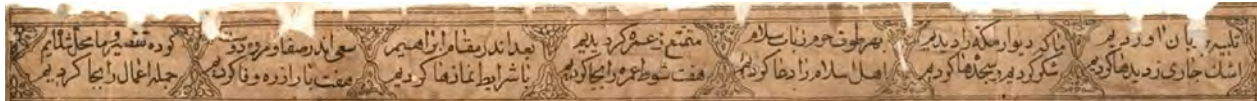 تلبیه بان اوردیم
اشک جاری ز دیدها کردیم
تا که دیوار مکه را دیدیم
شکر کردیم و سجدها کردیم
بهر طوف حرم ز باب سلام
اهل اسلام را دعا کردیم
متمتع ز عمره کردیدیم
هفت شوط عمره را بجا کردیم
بعد اندر مقام ابراهیم
با شرایط نمازها کردیم
سعی اندر صفا و مروه دوست
هفت بار از ره وفا کردیم
کوده تقصیر و ما محل شدایم
جمله اعمال را بجا کردیم